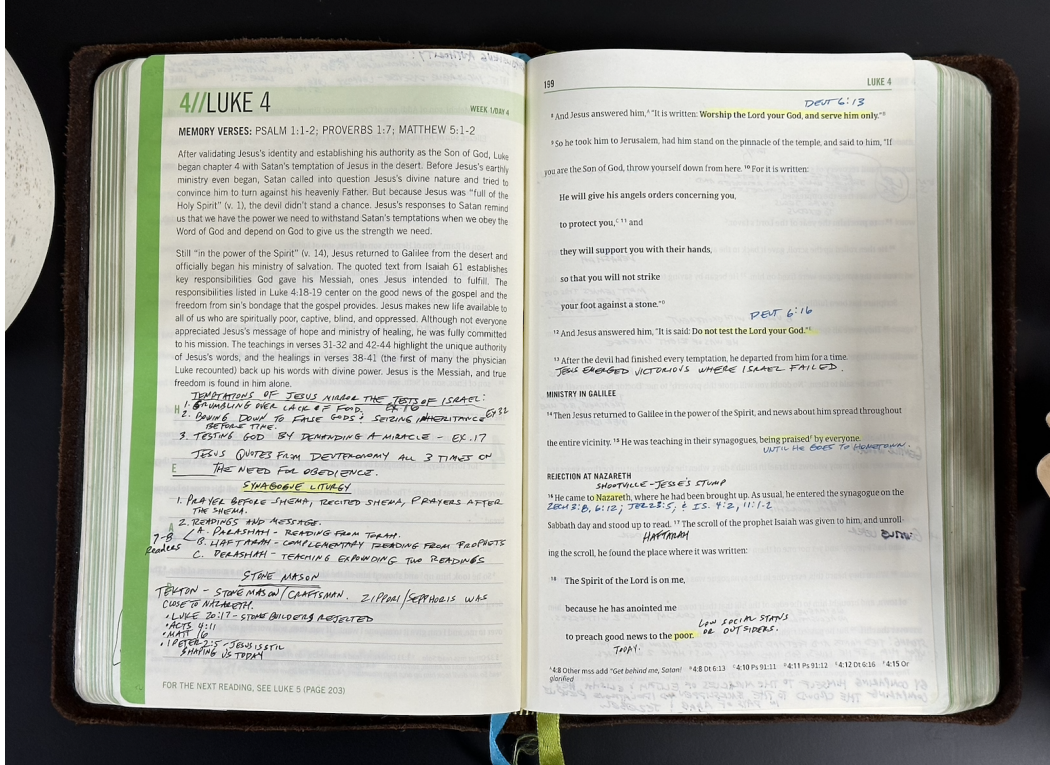 4//LUKE 4
WEEK 1/DAY 4
MEMORY VERSES: PSALM 1:1-2; PROVERBS 1:7; MATTHEW 5:1-2
After validating Jesus's identity and establishing his authority as the Son of God, Luke
began chapter 4 with Satan's temptation of Jesus in the desert. Before Jesus's earthly
ministry even began, Satan called into question Jesus's divine nature and tried to
convince him to turn against his heavenly Father. But because Jesus was "full of the
Holy Spirit" (v. 1), the devil didn't stand a chance. Jesus's responses to Satan remind
us that we have the power we need to withstand Satan's temptations when we obey the
Word of God and depend on God to give us the strength we need.
Still "in the power of the Spirit" (v. 14), Jesus returned to Galilee from the desert and
officially began his ministry of salvation. The quoted text from Isaiah 61 establishes
key responsibilities God gave his Messiah, ones Jesus intended to fulfill. The
responsibilities listed in Luke 4:18-19 center on the good news of the gospel and the
freedom from sin's bondage that the gospel provides. Jesus makes new life available to
all of us who are spiritually poor, captive, blind, and oppressed. Although not everyone
appreciated Jesus's message of hope and ministry of healing, he was fully committed
to his mission. The teachings in verses 31-32 and 42-44 highlight the unique authority
of Jesus's words, and the healings in verses 38-41 (the first of many the physician
Luke recounted) back up his words with divine power. Jesus is the Messiah, and true
freedom is found in him alone.
TEMPTATIONS OF JESUS MIRROR THE TESTS OF ISRAEL:
H 1. GRUMBLING OVER LACK OF FOOD. EX 16
2. BOWING DOWN TO FALSE GODS & SEIZING INHERITANCE EX 32
BEFORE TIME.
3. TESTING GOD BY DEMANDING A MIRACLE - EX. 17
JESUS QUOTES FROM DEUTERONOMY ALL 3 TIMES ON
E THE NEED FOR OBEDIENCE.
SYNAGOGUE LITURGY
1. PRAYER BEFORE SHEMA, RECITED SHEMA, PRAYERS AFTER
THE SHEMA.
2. READINGS AND MESSAGE.
A. PARASHAH - READING FROM TORAH.
7-8 Readers B. HAFTARAH - COMPLEMENTARY READING FROM PROPHETS
C. DERASHAH - TEACHING EXPOUNDING TWO READINGS
STONE MASON
TEKTON - STONE MASON/CRAFTSMAN. ZIPPORI/SEPPHORIS WAS
CLOSE TO NAZARETH.
• LUKE 20:17 - STONE BUILDERS REJECTED
• ACTS 4:11
• MATT 16
• 1 PETER 2:5 - JESUS IS STIL
SHAPING US TODAY
FOR THE NEXT READING, SEE LUKE 5 (PAGE 203)
199
LUKE 4
DEUT 6:13
8 And Jesus answered him,A "It is written: Worship the Lord your God, and serve him only."B
9 So he took him to Jerusalem, had him stand on the pinnacle of the temple, and said to him, "If
you are the Son of God, throw yourself down from here. 10 For it is written:
He will give his angels orders concerning you,
to protect you,C 11 and
they will support you with their hands,
so that you will not strike
your foot against a stone."D
DEUT 6:16
12 And Jesus answered him, "It is said: Do not test the Lord your God."E
13 After the devil had finished every temptation, he departed from him for a time.
JESUS EMERGED VICTORIOUS WHERE ISRAEL FAILED.
MINISTRY IN GALILEE
14 Then Jesus returned to Galilee in the power of the Spirit, and news about him spread throughout
the entire vicinity. 15 He was teaching in their synagogues, being praisedF by everyone.
UNTIL HE GOES TO HOMETOWN.
REJECTION AT NAZARETH
SHOOTVILLE - JESSE'S STUMP
16 He came to Nazareth, where he had been brought up. As usual, he entered the synagogue on the
ZECH 3:8, 6:12; JER 23:5, & IS. 4:2, 11:1-2
Sabbath day and stood up to read. 17 The scroll of the prophet Isaiah was given to him, and unroll-
HAFTARAH
ing the scroll, he found the place where it was written:
18 The Spirit of the Lord is on me,
because he has anointed me
LOW SOCIAL STATUS
to preach good news to the poor. OR OUTSIDERS.
TODAY.
A4:8 Other mss add "Get behind me, Satan! B4:8 Dt 6:13 C4:10 Ps 91:11 D4:11 Ps 91:12 E4:12 Dt 6:16 F4:15 Or
glorified